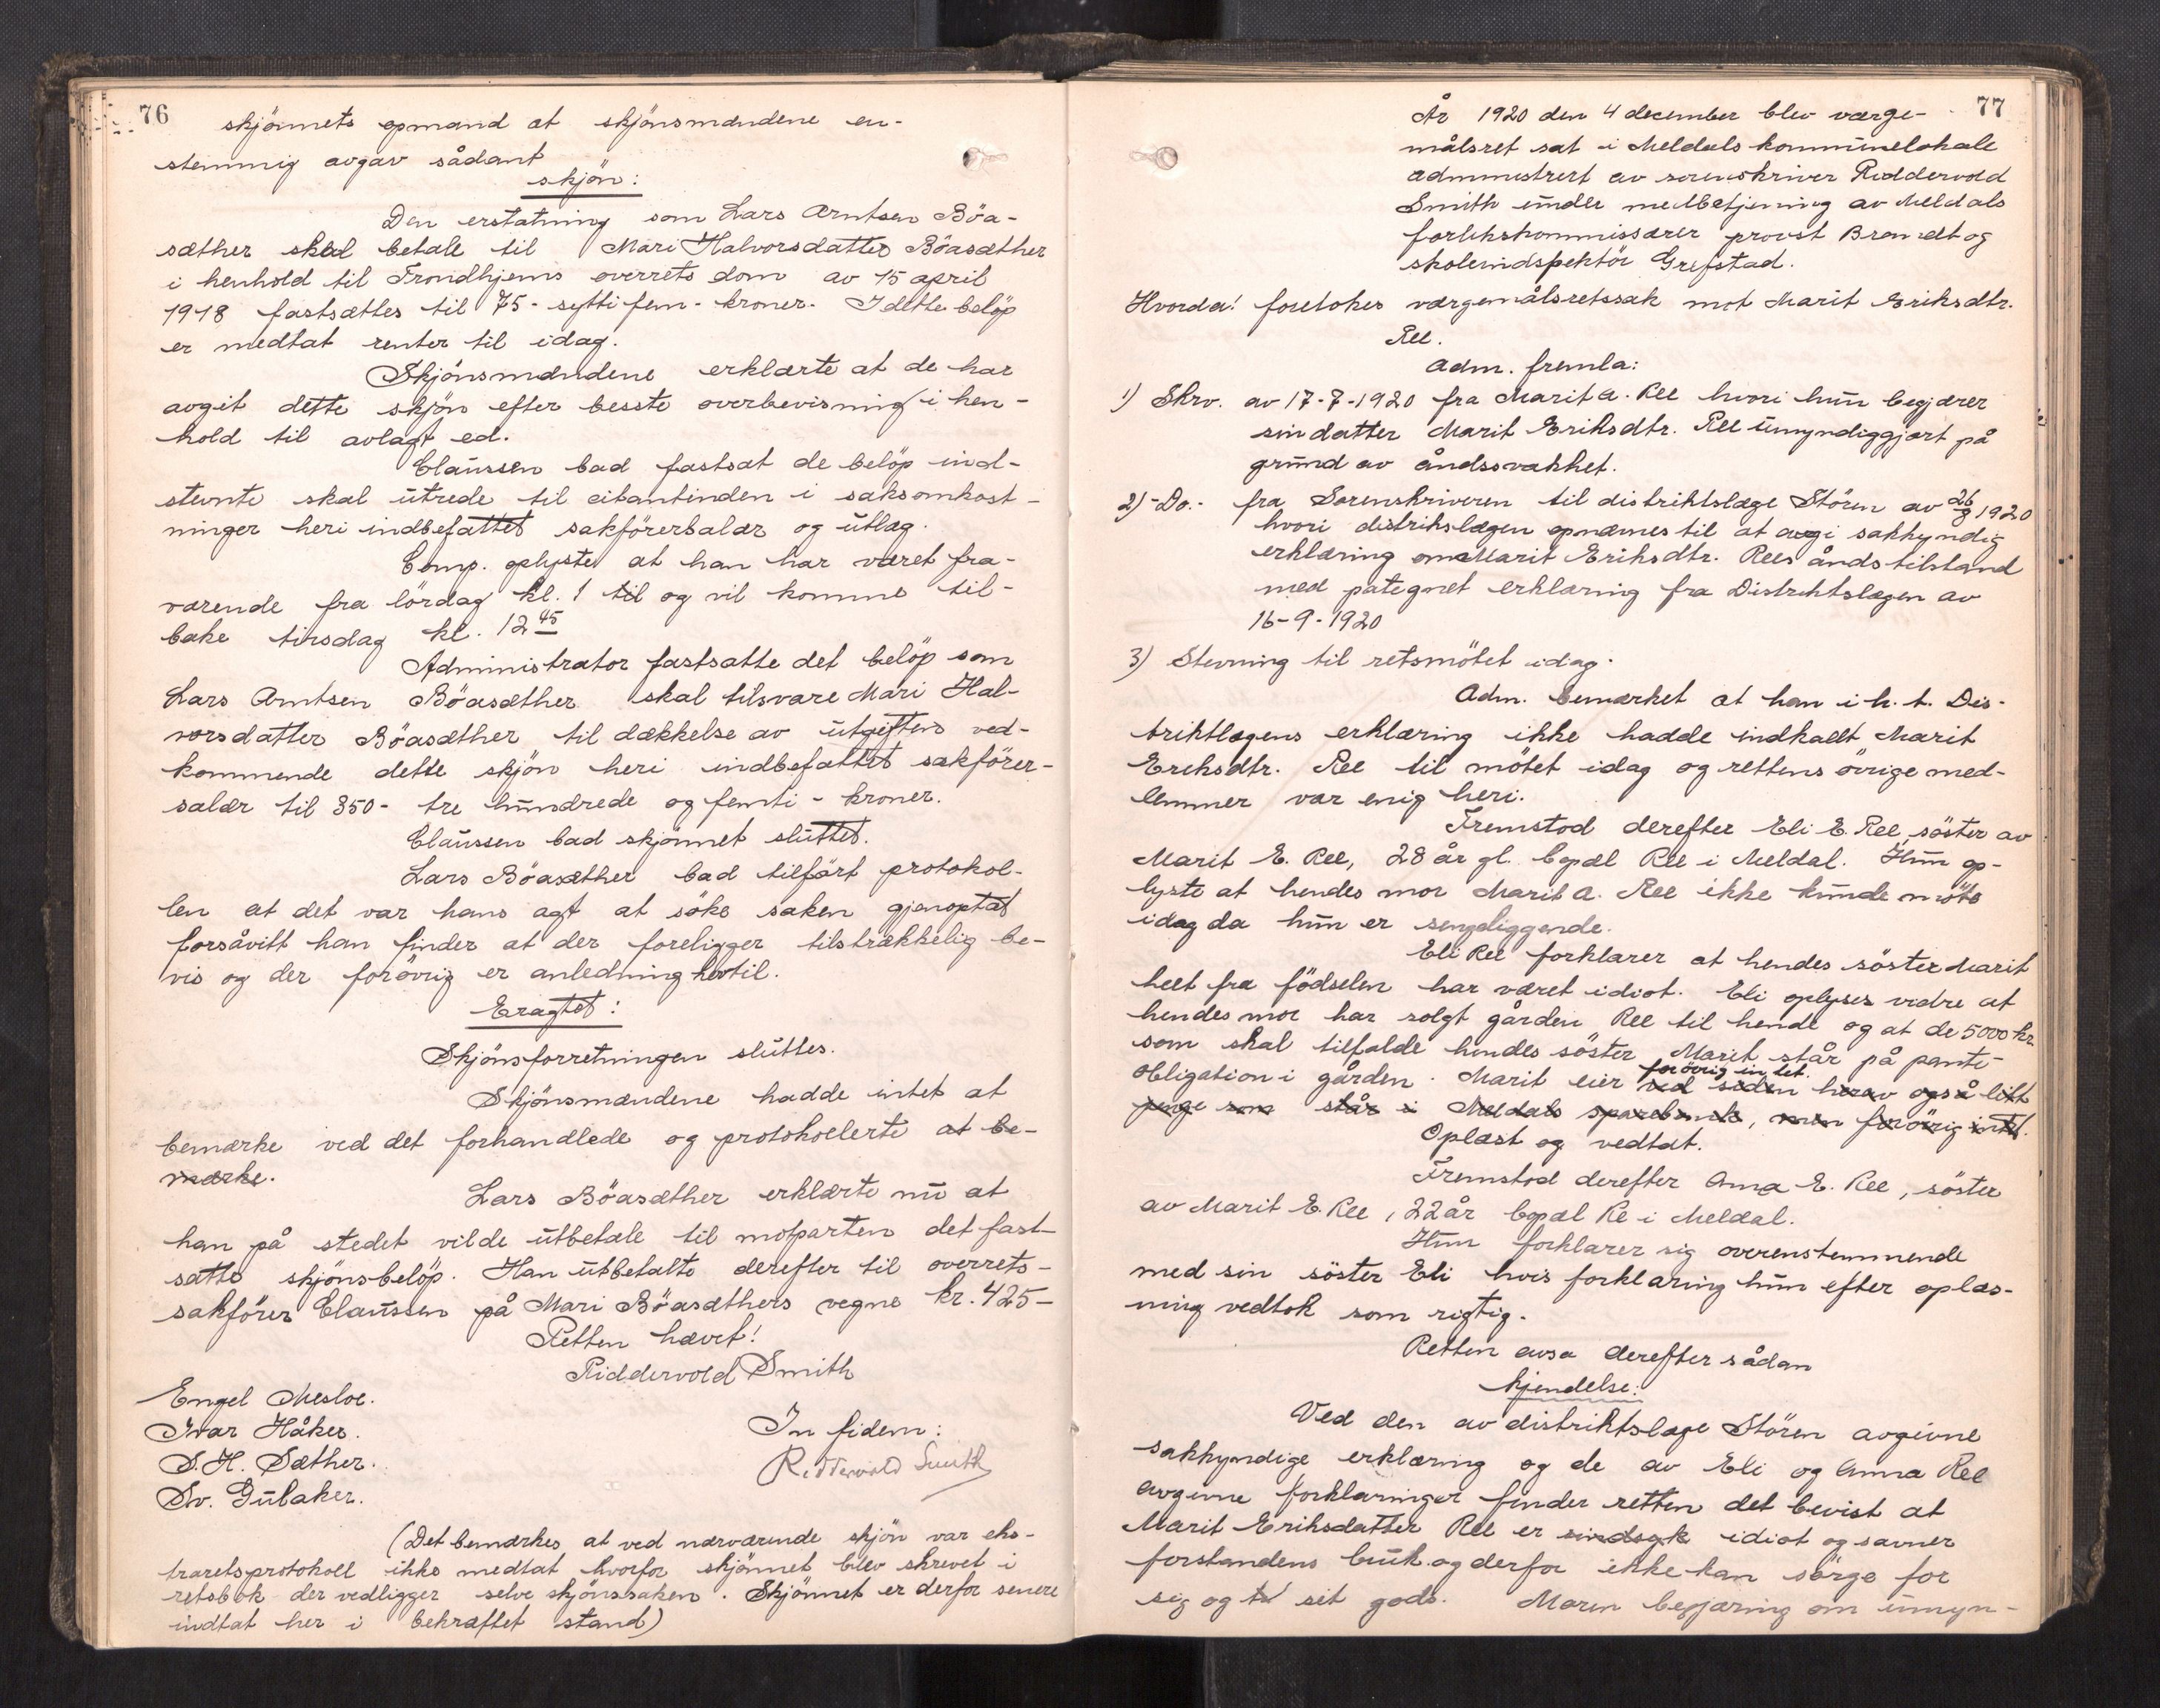 76
skjönnets opmand at skjönsmændene en-
stemmig avgav sådant
skjön:
Den erstatning som Lars Arntsen Böa-
sæther skal betale til Mari Halvorsdatter Böasæther
i henhold til Trondhjems overrets dom av 15 april
1918 fastsættes til 75 - sytti fem - kroner. I dette belöp
er medtat renter til idag.
Skjönsmændene erklærte at de har
avgit dette skjön efter besste overbevisning i hen-
hold til avlagt ed.
Claussen bad fastsat de belöp ind-
stevnte skal utrede til citantinden i saksomkost-
ninger heri indbefattet sakförersalær og utlæg.
Comp. oplyste at han har været fra-
værende fra lördag kl. 1 til og vil komme til-
bake tirsdag kl. 12 45
Administrator fastsatte det belöp som
Lars Arntsen Böasæther skal tilsvare Mari Hal-
vorsdatter Böasæther til dækkelse av utgifters ved-
kommende dette skjön heri indbefattet sakförer-
salær til 350 - tre hundrede og femti - kroner.
Claussen bad skjönnet sluttet.
Lars Böasæther bad tilfört protokol-
len at det var hans agt at söke saken gjenoptat
forsåvitt han finder at der foreligger tilstrækkelig be-
vis og der forövrig er anledning hertil.
Eragtet:
Skjönsforretningen sluttes.
Skjönsmændene hadde intet at
bemærke ved det forhandlede og protokollerte at be-
mærke.
Lars Böasæther erklærte nu at
han på stedet vilde utbetale til motparten det fast-
satte skjönsbelöp. Han utbetalte derefter til overrets-
sakförer Claussen på Mari Böasæthers vegne kr. 425-
Retten hævet!
Riddervold Smith
Engel Mesloe.
Ivar Håker.
In fidem:
S. H. Sæther.
Riddervold Smith
Sv. Gulaker.
(Det bemærkes at ved nærværende skjön var eks-
traretsprotokoll ikke medtat hvorfor skjönnet blev skrevet i
retsbok der vedligger selve skjönssaken. Skjönnet er derfor senere
indtat her i bekræftet stand)
77
År 1920 den 4 december blev værge-
målsret sat i Meldals kommunelokale
administrert av sorenskriver Riddervold
Smith under medbetjening av Meldals
forlikskommissærer provst Brandt og
skoleindspektör Grefstad.
Hvorda! foretokes værgemålsretssak mot Marit Eriksdtr.
Ree.
Adm. fremla:
1) Skrv. av 17-7-1920 fra Marit A. Ree hvori hun begjærer
sin datter Marit Eriksdtr. Ree umyndiggjort på
grund av åndssvakhet.
2) -Do.- fra Sorenskriveren til distriktslæge Stören av 26/8 1920
hvori distrikslægen opnævnes til at avgi sakkyndig
erklæring om Marit Eriksdtr. Rees åndstilstand
med påtegnet erklæring fra Distriktslægen av
16-9-1920
3) Stevning til retsmötet idag.
Adm. bemærket at han i h. t. Dis-
triktlægens erklæring ikke hadde indkaldt Marit
Eriksdtr. Ree til mötet idag og rettens övrige med-
lemmer var enig heri.
Fremstod derefter Eli E. Ree, söster av
Marit E. Ree, 28 år gl. bopæl Ree i Meldal. Hun op-
lyste at hendes mor Marit A. Ree ikke kunde möte
idag da hun er sengeliggende.
Eli Ree forklarer at hendes söster Marit
helt fra födselen har været idiot. Eli oplyser vidre at
hendes mor har solgt gården Ree til hende og at de 5000 kr.
som skal tilfalde hendes söster Marit står på pante-
forövrig intet.
obligation i gården. Marit eier ved siden herav også litt
penge som står i Meldals sparebank, men forövrig intet.
Oplæst og vedtat.
Fremstod derefter Anna E. Ree, söster
av Marit E. Ree, 22 år bopæl Re i Meldal.
Hun forklarer sig overenstemmende
med sin söster Eli hvis forklaring hun efter oplæs-
ning vedtok som rigtig.
Retten avsa derefter sådan
kjendelse:
Ved den av distriktslæge Stören avgivne
sakkyndige erklæring og de av Eli og Anna Ree
avgivne forklaringer finder retten det bevist at
Marit Eriksdatter Ree er sindsyk idiot og savner
forstandens bruk og derfor ikke kan sörge for
sig og sit gods. Moren begjæring om umyn-